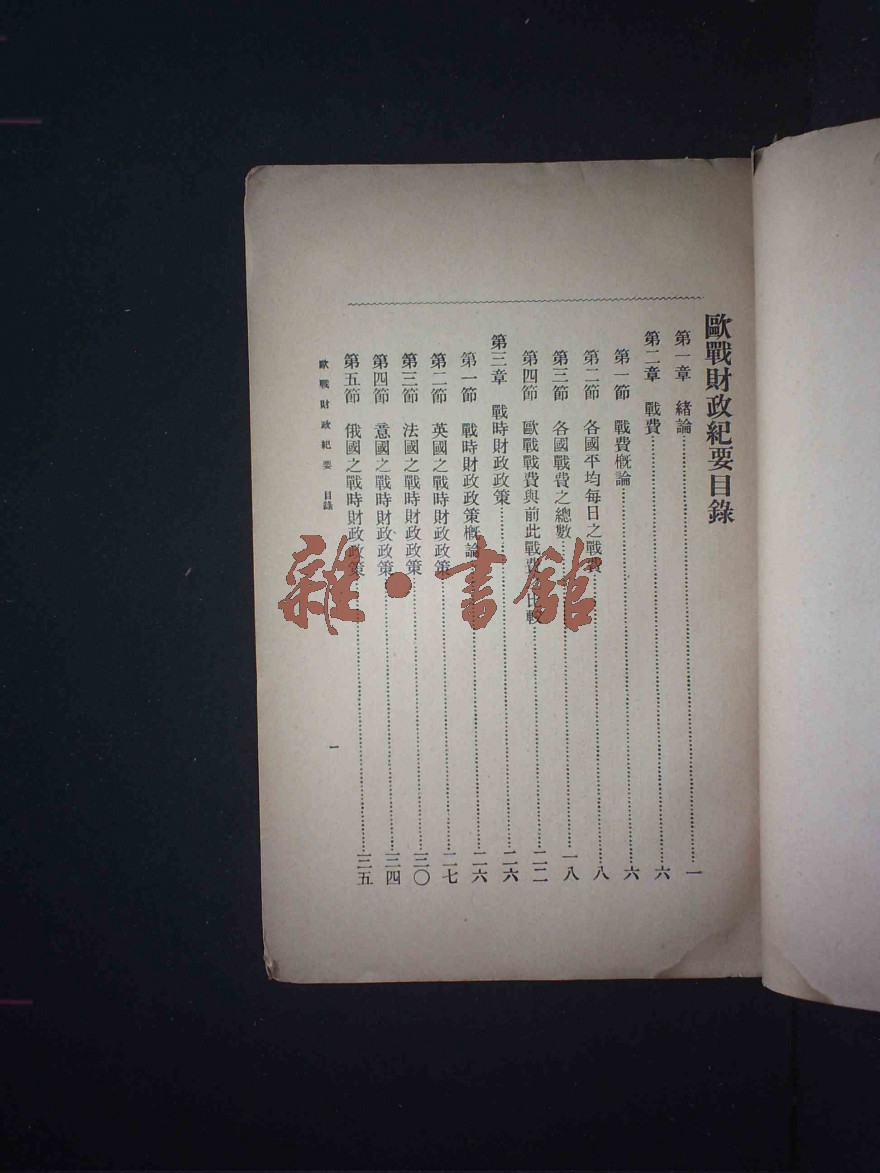 歐戰財政紀要目錄
第一章 緒論……一
第二章 戰費……六
第一節 戰費概論……六
第二節 各國平均每日之戰費……八
第三節 各國戰費之總數……一八
第四節 歐戰戰費與前此戰費之比較……二二
第三章 戰時財政政策……二六
第一節 戰時財政政策概論……二六
第二節 英國之戰時財政政策……二七
第三節 法國之戰時財政政策……三〇
第四節 意國之戰時財政政策……三四
第五節 俄國之戰時財政政策……三五
歐戰財政紀要 目錄 一
雜·書館